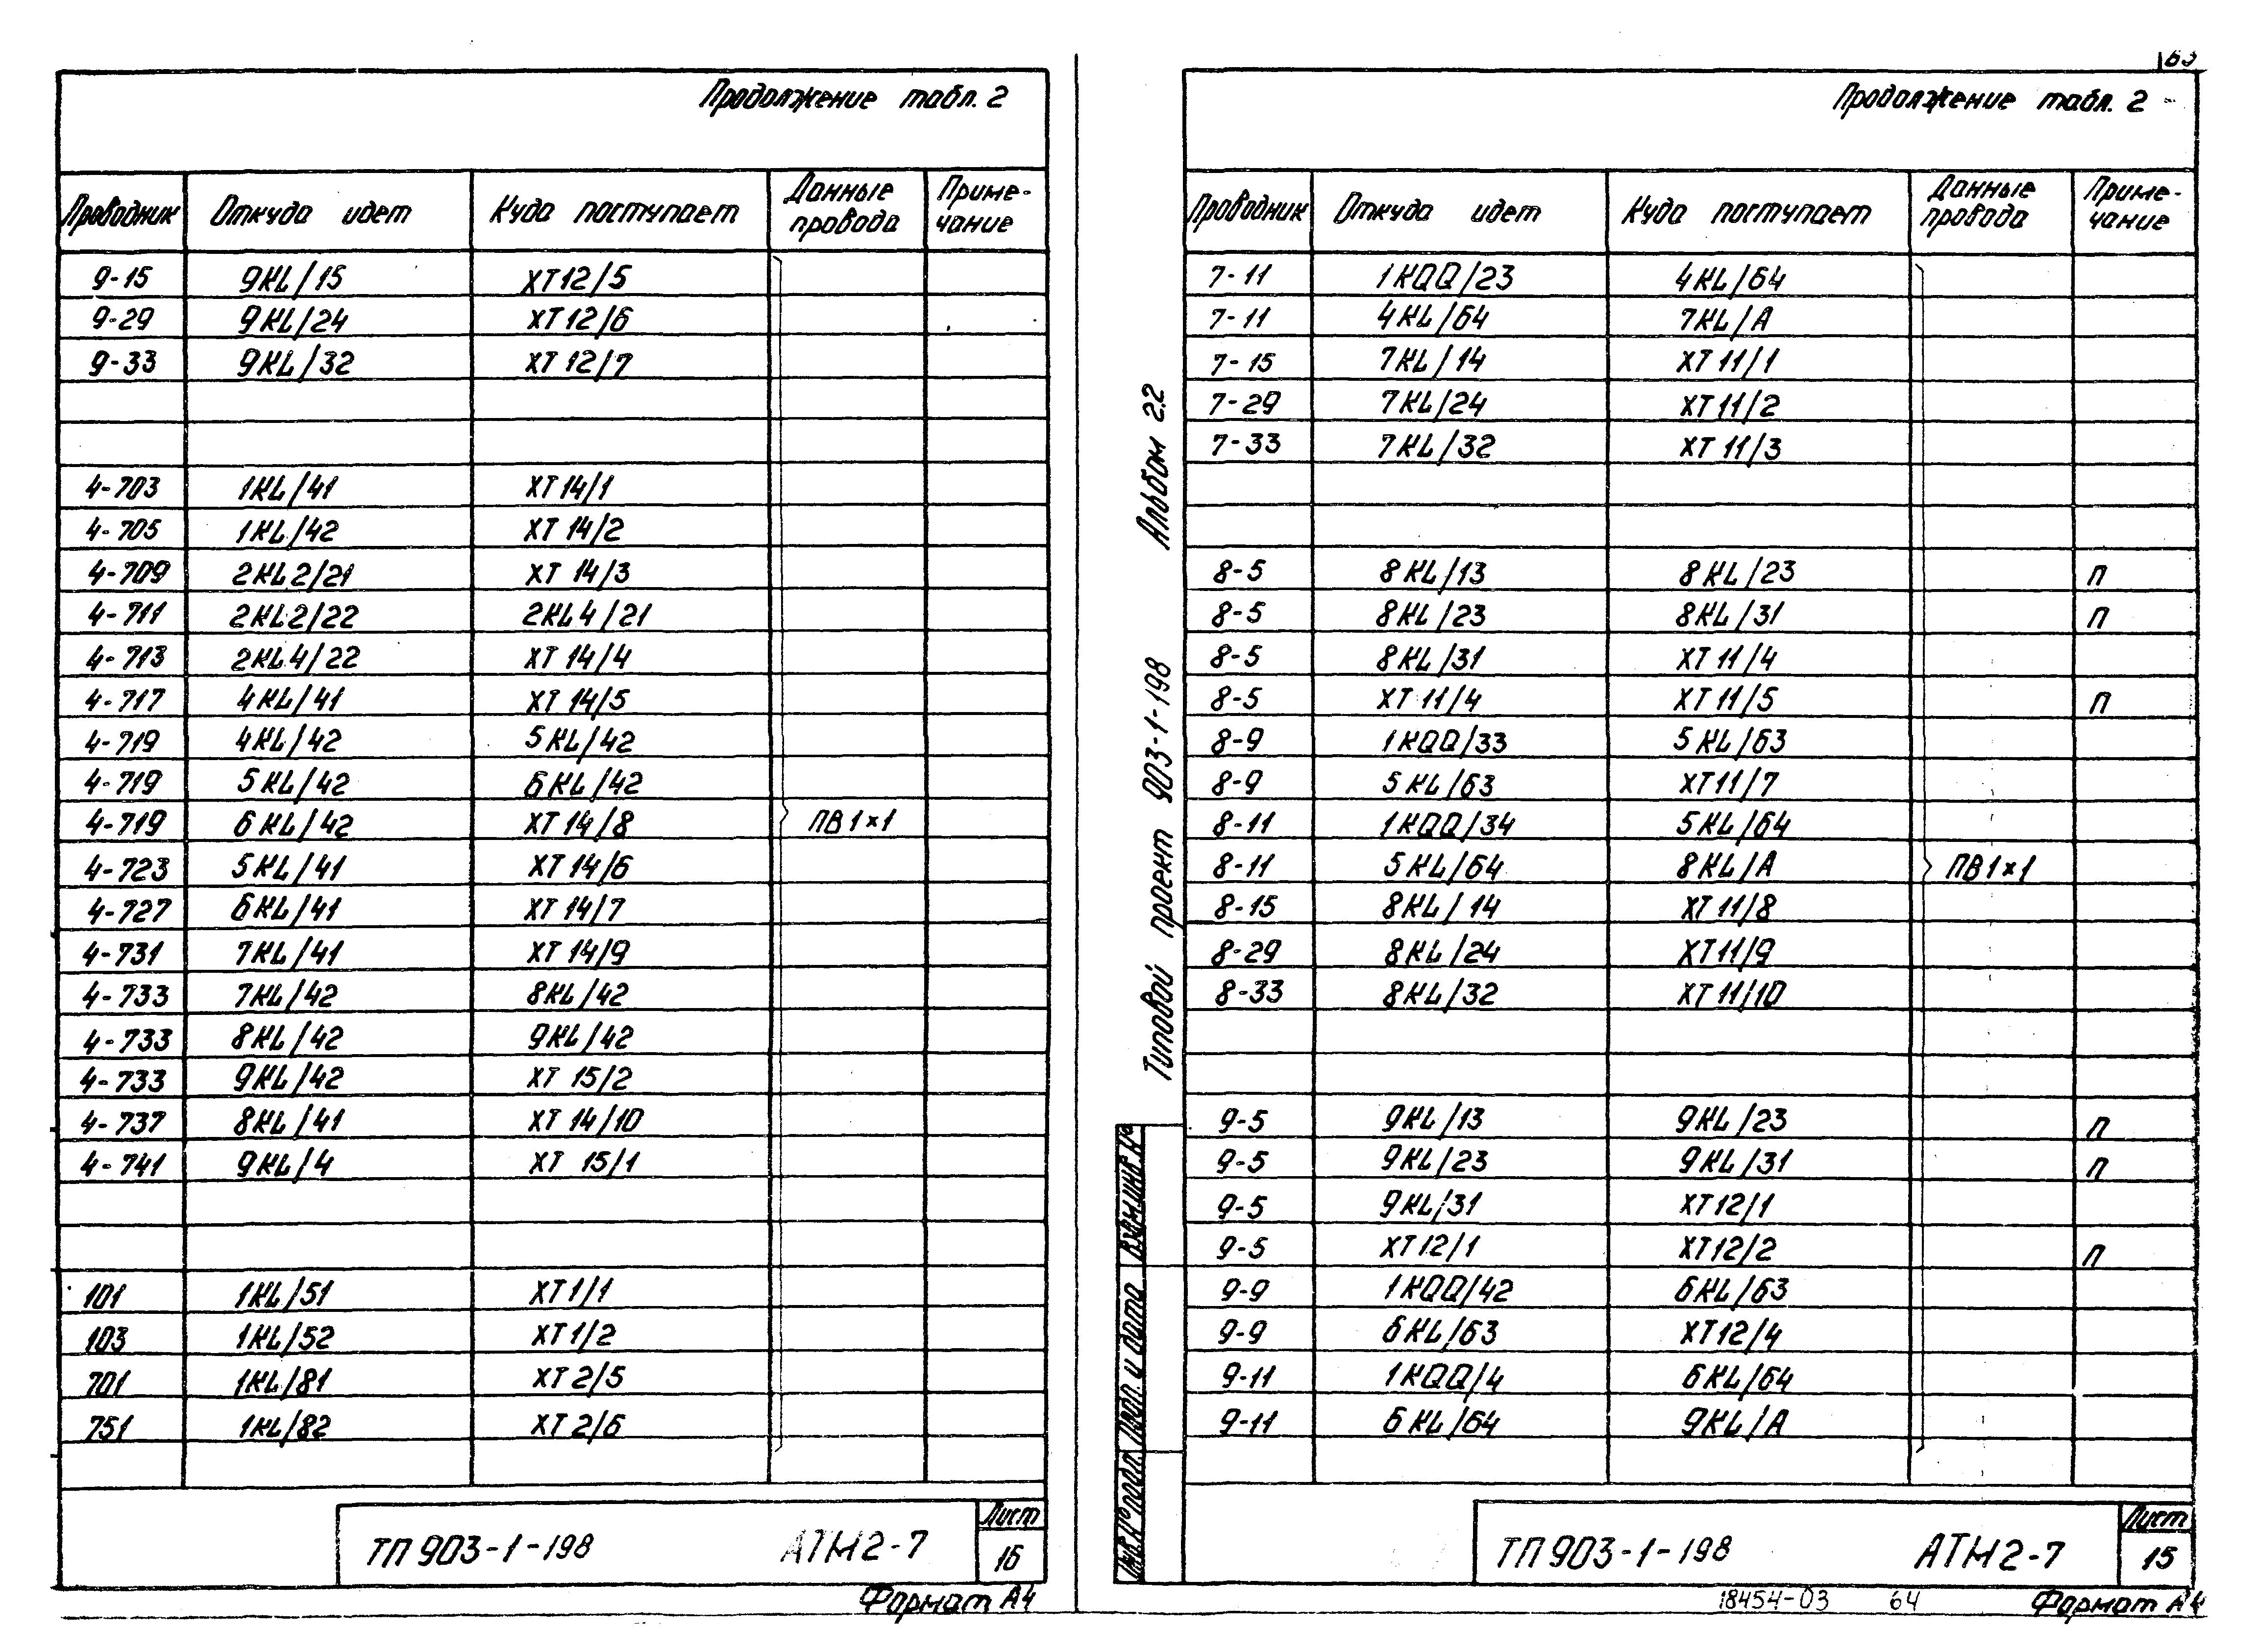 Продолжение табл. 2
Проводник Откуда идет Куда поступает Данные провода Приме-чание
9-15 9KL/15 XT12/5
9-29 9KL/24 XT12/6
9-33 9KL/32 XT12/7
4-703 1KL/41 XT14/1
4-705 1KL/42 XT14/2
4-709 2KL2/21 XT14/3
4-711 2KL2/22 2KL4/21
4-713 2KL4/22 XT14/4
4-717 4KL/41 XT14/5
4-719 4KL/42 5KL/42
4-719 5KL/42 6KL/42
4-719 6KL/42 XT14/8 ПВ1×1
4-723 5KL/41 XT14/6
4-727 6KL/41 XT14/7
4-731 7KL/41 XT14/9
4-733 7KL/42 8KL/42
4-733 8KL/42 9KL/42
4-733 9KL/42 XT15/2
4-737 8KL/41 XT14/10
4-741 9KL/4 XT15/1
101 1KL/51 XT1/1
103 1KL/52 XT1/2
701 1KL/81 XT2/5
751 1KL/82 XT2/6
ТП903-1-198 АТМ2-7 Лист 16
Формат А4
Продолжение табл. 2
Проводник Откуда идет Куда поступает Данные провода Приме-чание
7-11 1KQQ/23 4KL/64
7-11 4KL/64 7KL/A
7-15 7KL/14 XT11/1
7-29 7KL/24 XT11/2
7-33 7KL/32 XT11/3
8-5 8KL/13 8KL/23 П
8-5 8KL/23 8KL/31 П
8-5 8KL/31 XT11/4
8-5 XT11/4 XT11/5 П
8-9 1KQQ/33 5KL/63
8-9 5KL/63 XT11/7
8-11 1KQQ/34 5KL/64
8-11 5KL/64 8KL/A ПВ1×1
8-15 8KL/14 XT11/8
8-29 8KL/24 XT11/9
8-33 8KL/32 XT11/10
9-5 9KL/13 9KL/23 П
9-5 9KL/23 9KL/31 П
9-5 9KL/31 XT12/1
9-5 XT12/1 XT12/2 П
9-9 1KQQ/42 6KL/63
9-9 6KL/63 XT12/4
9-11 1KQQ/4 6KL/64
9-11 6KL/64 9KL/A
ТП903-1-198 АТМ2-7 Лист 15
18454-03 64 Формат А4
Типовой проект 903-1-198 Альбом 2.2
Инв.№подл. Подп. и дата Взам.инв.№